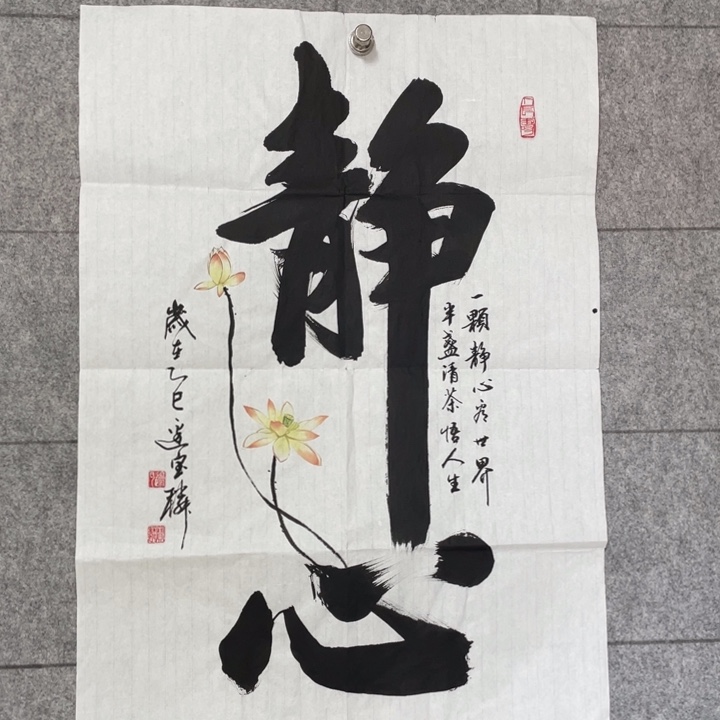 静心
一顆静心看世界
半盞清茶悟人生
歲在乙巳